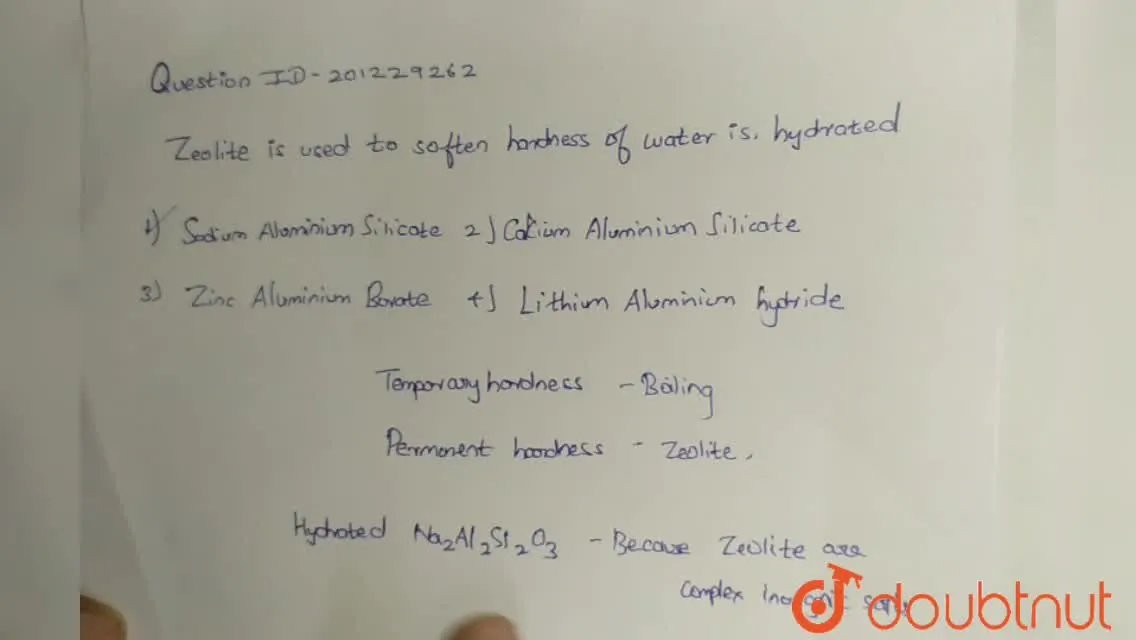 Question ID - 201229262
Zeolite is used to soften hardness of water is. hydrated
1) Sodium Aluminium Silicate 2) Calcium Aluminium Silicate
3) Zinc Aluminium Borate 4) Lithium Aluminium hydride
Temporary hardness - Boiling
Permanent hardness - Zeolite.
Hydrated Na2Al2Si2O3 - Because Zeolite are
Complex inorganic
doubtnut